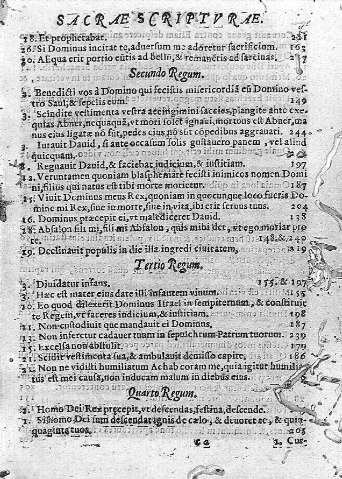 SACRAE SCRIPTVRAE.
18. Et prophetabat. 221
26. Si Dominus incitat te, aduersum me adoretur sacrificium. 163
30. AEqua erit portio euntis ad bellũ, & remanẽtis ad sarcinas. 217
Secundo Regum.
2. Benedicti vos à Domino qui fecistis misericordiã cũ Domino vestro
Saul, & sepelistis eum. 149
3. Scindite vestimenta vestra accingimini saccis, plangite ante exequias
Abner, nequaquã, vt mori solet ignaui, mortuus est Abner, manus
eius ligatæ nõ sũt, pedes eius nõ sũt cõpedibus aggrauati. 244
3. Iurauit Dauid, si ante occasum solis gustauero panem, vel aliud
quicquam.
8. Regnauit Dauid, & faciebat iudicium, & iustitiam. 197
12. Veruntamen quoniam blasphemare fecisti inimicos nomen Domini,
filius qui natus est tibi morte morietur. 187
15. Viuit Dominus meus Rex, quoniam in quocunque loco fueris Domine
mi Rex, siue in morte, siue in vita, ibi erit seruus tuus. 204
16. Dominus præcepit ei, vt malediceret Dauid. 138
18. Absalon fili mi, fili mi Absalon, quis mihi det, vt ego moriar pro
te. 148. & 240
19. Declinauit populus in die illa ingredi ciuitatem. 219
Tertio Regum.
3. Diuidatur infans. 155. & 197
3. Hæc est mater eius date illi infantem vinum. 155
10. Eo quod dilexerit Dominus Israel in sempiternum, & constituit
te Regem, vt faceres iudicium, & iustitiam. 198
11. Non custodiuit quæ mandauit ei Dominus. 187
13. Non inferetur cadauer tuum in sepulchrum Patrum tuorum. 239
Excelsa non abstulit. 179
21. Scidit vestimenta sua, & ambulauit demisso capite. 186
Non ne vidisti humiliatum Achab coram me, quia igitur humiliatus
est mei causa, non inducam malum in diebus eius.
Quarto Regum.
1. Homo Dei Rex præcepit, vt descendas, festina, descende.
1. Si homo Dei sum descendat ignis de cælo, & deuoret te, & quinquaginta
tuos. 203